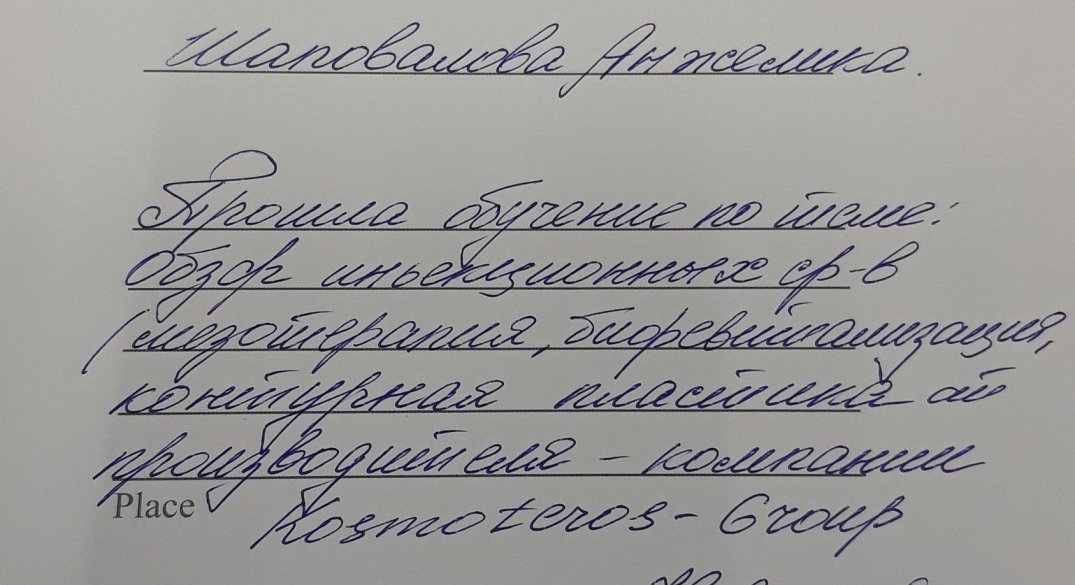 Шаповалова Анжелика.
Прошла обучение по теме:
Обзор иньекционных ср-в
(мезотерапия, биоревитализация,
контурная пластика) от
производителя – компании
Place
Kosmoteros - Group